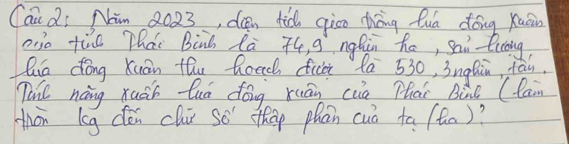 Câu 2: Năm 2023, diện tích gieo trồng lúa đông xuân
của tỉnh Thái Bình là 74,9 nghìn ha, sản lượng
lúa đông xuân thu hoạch được là 530,3 nghìn tấn.
Tính năng xuất lúa đông xuân của Thái Bình (làm
tròn kq đến chữ số thập phân của tạ/ha)?